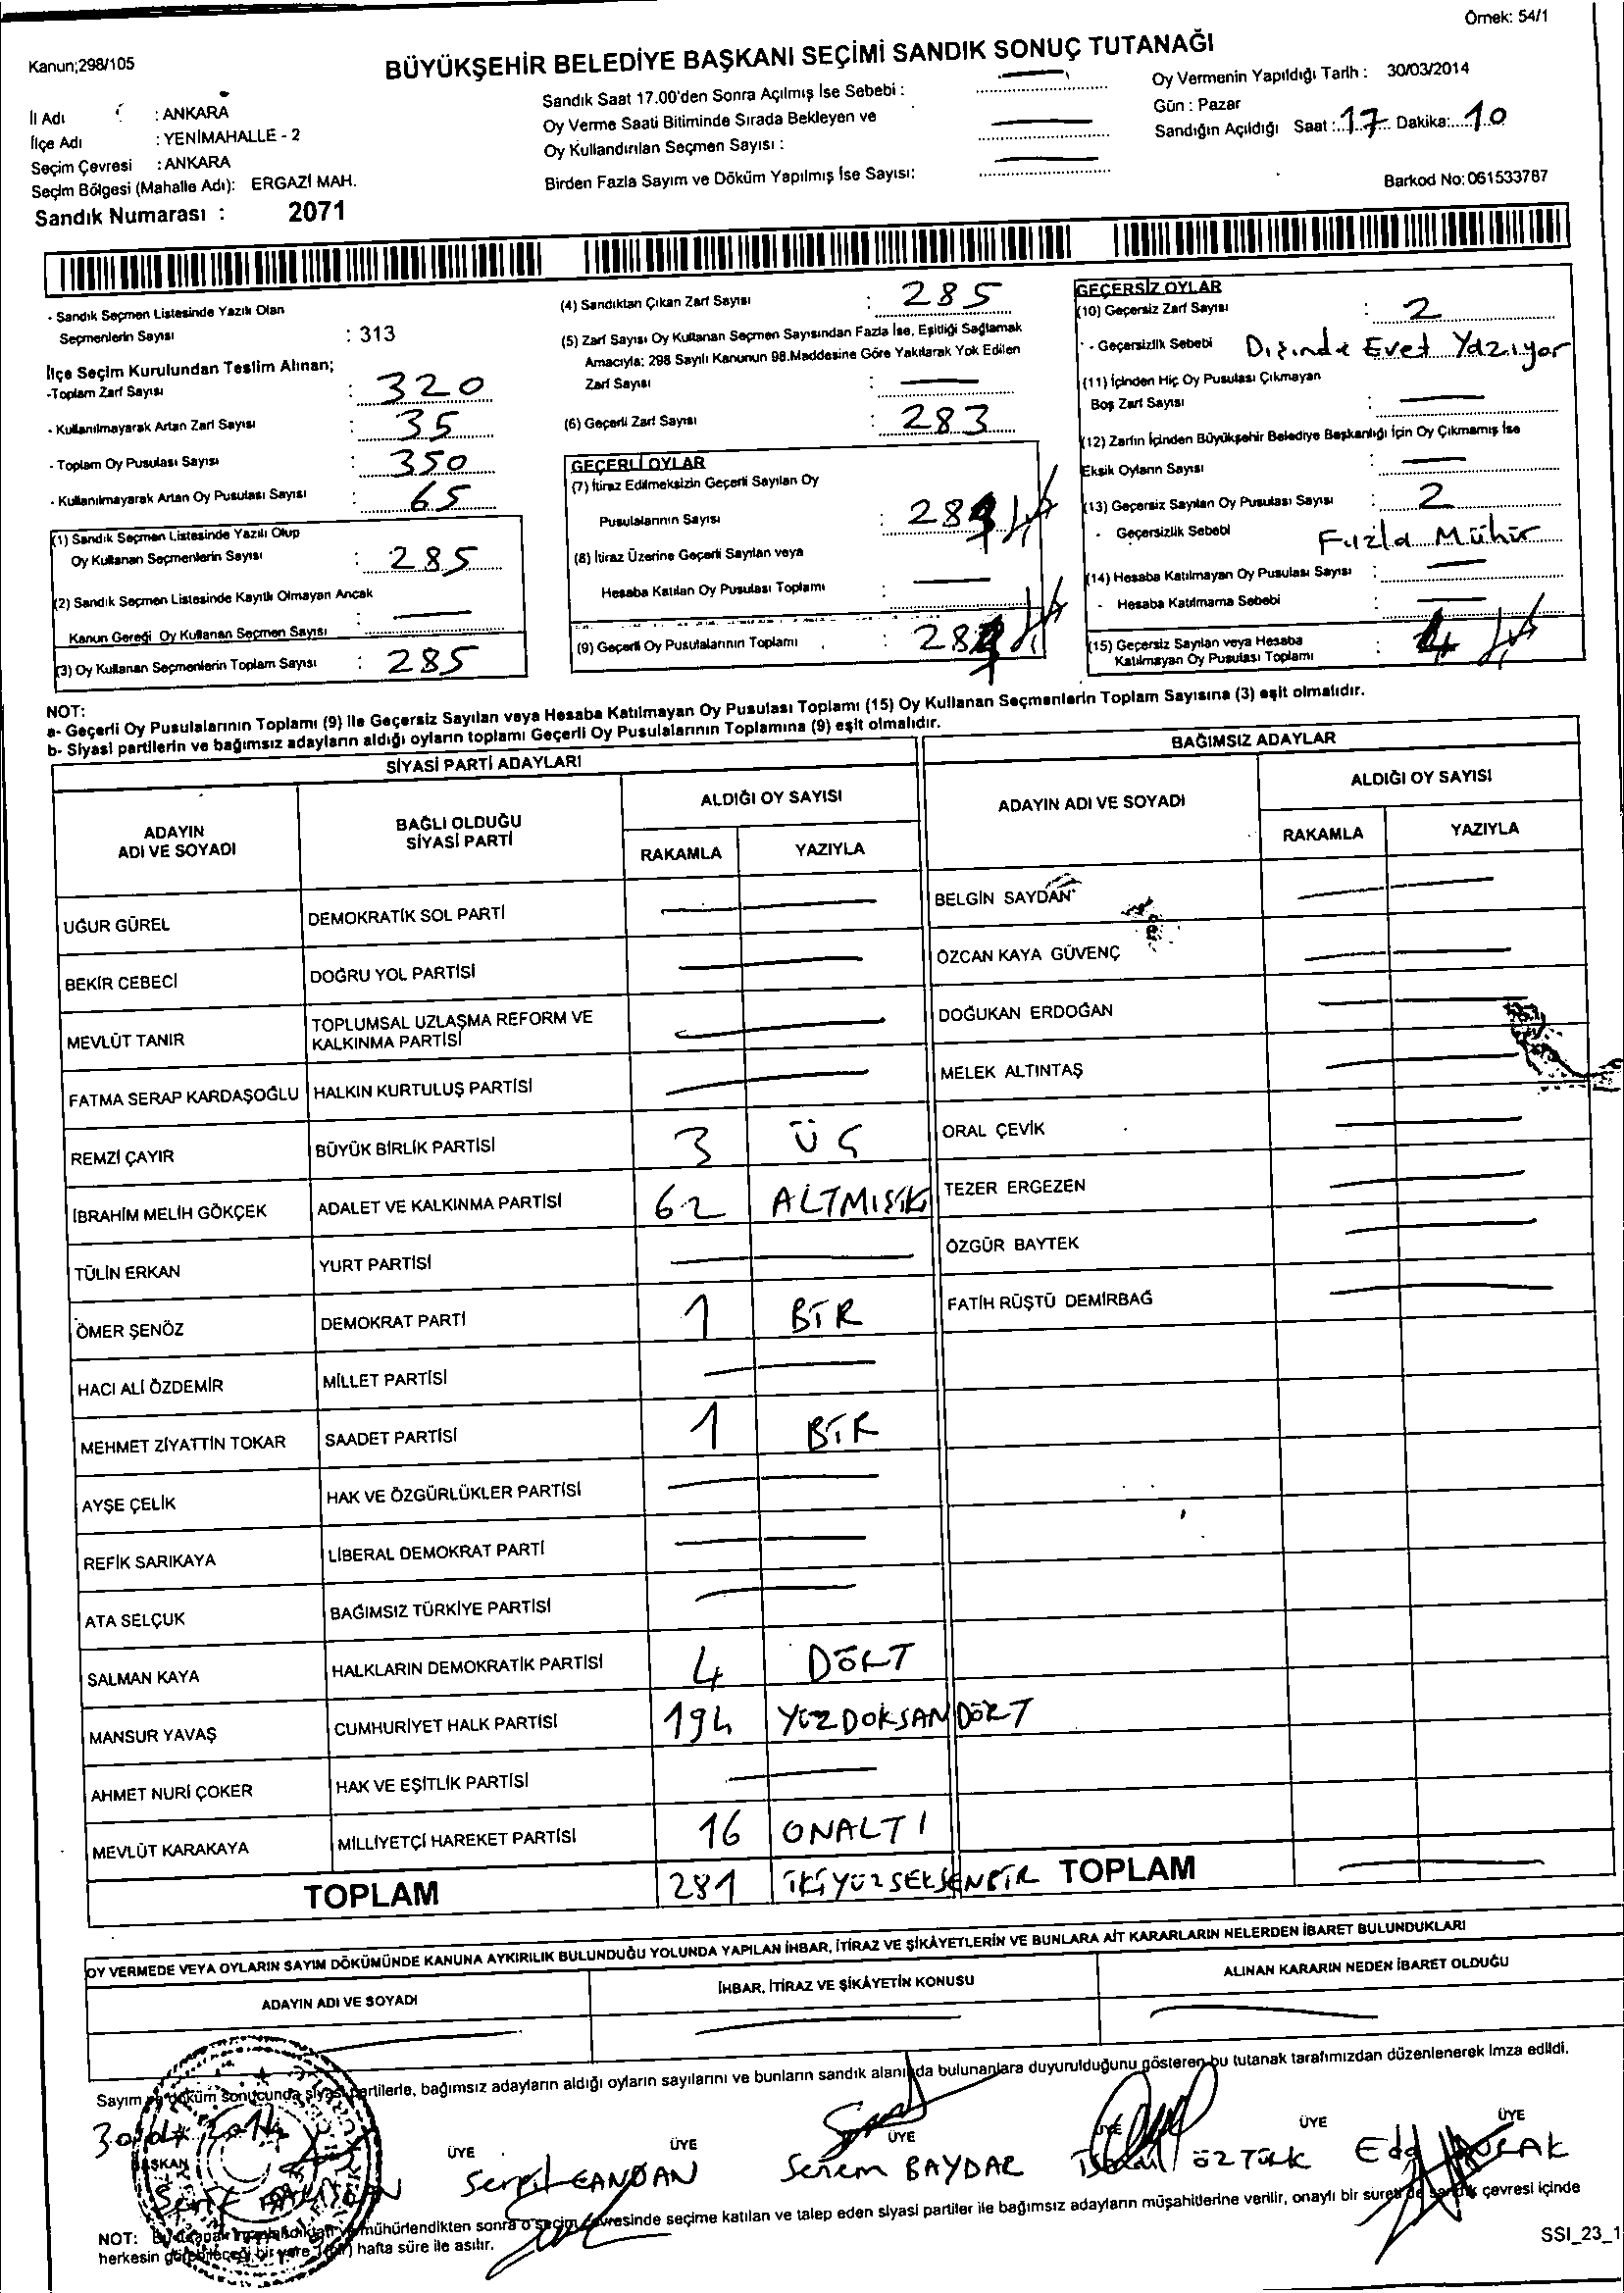 Örnek: 54/1
Kanun;298/105
BÜYÜKŞEHİR BELEDİYE BAŞKANI SEÇİMİ SANDIK SONUÇ TUTANAĞI
İl Adı : ANKARA
İlçe Adı : YENİMAHALLE - 2
Seçim Çevresi : ANKARA
Seçim Bölgesi (Mahalle Adı): ERGAZİ MAH.
Sandık Numarası : 2071
Sandık Saat 17.00'den Sonra Açılmış İse Sebebi :
Oy Verme Saati Bitiminde Sırada Bekleyen ve
Oy Kullandırılan Seçmen Sayısı :
Birden Fazla Sayım ve Döküm Yapılmış İse Sayısı:
Oy Vermenin Yapıldığı Tarih : 30/03/2014
Gün : Pazar
Sandığın Açıldığı Saat : 17 Dakika: 10
Barkod No: 061533787
- Sandık Seçmen Listesinde Yazılı Olan
Seçmenlerin Sayısı : 313
İlçe Seçim Kurulundan Teslim Alınan;
-Toplam Zarf Sayısı : 320
- Kullanılmayarak Artan Zarf Sayısı : 35
- Toplam Oy Pusulası Sayısı : 350
- Kullanılmayarak Artan Oy Pusulası Sayısı : 65
(1) Sandık Seçmen Listesinde Yazılı Olup
Oy Kullanan Seçmenlerin Sayısı : 285
(2) Sandık Seçmen Listesinde Kayıtlı Olmayan Ancak
Kanun Gereği Oy Kullanan Seçmen Sayısı :
(3) Oy Kullanan Seçmenlerin Toplam Sayısı : 285
(4) Sandıktan Çıkan Zarf Sayısı : 285
(5) Zarf Sayısı Oy Kullanan Seçmen Sayısından Fazla İse, Eşitliği Sağlamak
Amacıyla: 298 Sayılı Kanunun 98.Maddesine Göre Yakılarak Yok Edilen
Zarf Sayısı :
(6) Geçerli Zarf Sayısı : 283
GEÇERLİ OYLAR
(7) İtiraz Edilmeksizin Geçerli Sayılan Oy
Pusulalarının Sayısı :
(8) İtiraz Üzerine Geçerli Sayılan veya
Hesaba Katılan Oy Pusulası Toplamı :
(9) Geçerli Oy Pusulalarının Toplamı :
GEÇERSİZ OYLAR
(10) Geçersiz Zarf Sayısı : 2
- Geçersizlik Sebebi Dışında Evet Yazıyor
(11) İçinden Hiç Oy Pusulası Çıkmayan
Boş Zarf Sayısı :
(12) Zarfın İçinden Büyükşehir Belediye Başkanlığı İçin Oy Çıkmamış İse
Eksik Oyların Sayısı :
(13) Geçersiz Sayılan Oy Pusulası Sayısı : 2
- Geçersizlik Sebebi Fazla Mühür
(14) Hesaba Katılmayan Oy Pusulası Sayısı :
- Hesaba Katılmama Sebebi :
(15) Geçersiz Sayılan veya Hesaba
Katılmayan Oy Pusulası Toplamı : 4
NOT:
a- Geçerli Oy Pusulalarının Toplamı (9) ile Geçersiz Sayılan veya Hesaba Katılmayan Oy Pusulası Toplamı (15) Oy Kullanan Seçmenlerin Toplam Sayısına (3) eşit olmalıdır.
b- Siyasi partilerin ve bağımsız adayların aldığı oyların toplamı Geçerli Oy Pusulalarının Toplamına (9) eşit olmalıdır.
SİYASİ PARTİ ADAYLARI
ADAYIN ADI VE SOYADI BAĞLI OLDUĞU SİYASİ PARTİ ALDIĞI OY SAYISI
RAKAMLA YAZIYLA
UĞUR GÜREL DEMOKRATİK SOL PARTİ
BEKİR CEBECİ DOĞRU YOL PARTİSİ
MEVLÜT TANIR TOPLUMSAL UZLAŞMA REFORM VE KALKINMA PARTİSİ
FATMA SERAP KARDAŞOĞLU HALKIN KURTULUŞ PARTİSİ
REMZİ ÇAYIR BÜYÜK BİRLİK PARTİSİ 3 ÜÇ
İBRAHİM MELİH GÖKÇEK ADALET VE KALKINMA PARTİSİ 62
TÜLİN ERKAN YURT PARTİSİ
ÖMER ŞENÖZ DEMOKRAT PARTİ 1 BİR
HACI ALİ ÖZDEMİR MİLLET PARTİSİ
MEHMET ZİYATTİN TOKAR SAADET PARTİSİ 1 BİR
AYŞE ÇELİK HAK VE ÖZGÜRLÜKLER PARTİSİ
REFİK SARIKAYA LİBERAL DEMOKRAT PARTİ
ATA SELÇUK BAĞIMSIZ TÜRKİYE PARTİSİ
SALMAN KAYA HALKLARIN DEMOKRATİK PARTİSİ 4 DÖRT
MANSUR YAVAŞ CUMHURİYET HALK PARTİSİ 194 YÜZDOKSANDÖRT
AHMET NURİ ÇOKER HAK VE EŞİTLİK PARTİSİ
MEVLÜT KARAKAYA MİLLİYETÇİ HAREKET PARTİSİ 16 ONALTI
TOPLAM 281 İKİYÜZSEKSENBİR
BAĞIMSIZ ADAYLAR
ADAYIN ADI VE SOYADI ALDIĞI OY SAYISI
RAKAMLA YAZIYLA
BELGİN SAYDAN
ÖZCAN KAYA GÜVENÇ
DOĞUKAN ERDOĞAN
MELEK ALTINTAŞ
ORAL ÇEVİK
TEZER ERGEZEN
ÖZGÜR BAYTEK
FATİH RÜŞTÜ DEMİRBAĞ
TOPLAM
OY VERMEDE VEYA OYLARIN SAYIM DÖKÜMÜNDE KANUNA AYKIRILIK BULUNDUĞU YOLUNDA YAPILAN İHBAR, İTİRAZ VE ŞİKÂYETLERİN VE BUNLARA AİT KARARLARIN NELERDEN İBARET BULUNDUKLARI
ADAYIN ADI VE SOYADI İHBAR, İTİRAZ VE ŞİKÂYETİN KONUSU ALINAN KARARIN NEDEN İBARET OLDUĞU
Sayım ve döküm sonucunda siyasi partilerle, bağımsız adayların aldığı oyların sayılarını ve bunların sandık alanında bulunanlara duyurulduğunu gösteren bu tutanak tarafımızdan düzenlenerek imza edildi.
BAŞKAN ÜYE ÜYE ÜYE ÜYE ÜYE ÜYE
Senem BAYDAR ÖZTÜRK
NOT: mühürlendikten sonra o seçim çevresinde seçime katılan ve talep eden siyasi partiler ile bağımsız adayların müşahitlerine verilir, onaylı bir sureti de sandık çevresi içinde
herkesin görebileceği bir yere hafta süre ile asılır.
SSI_23_1